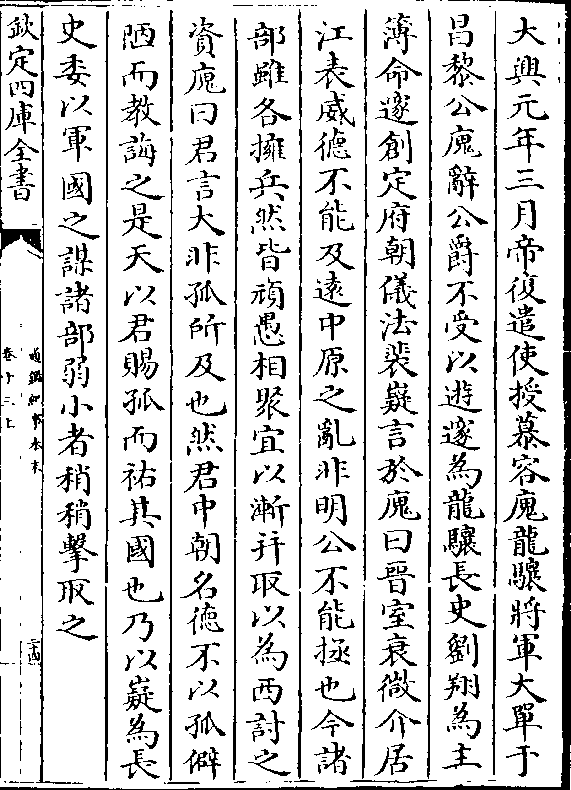 大興元年三月帝復遣使授慕容廆龍驤將軍大單于
昌黎公廆辭公爵不受以遊邃為龍驤長史劉翔為主
簿命邃創定府朝儀法裴嶷言於廆曰晉室衰微介居
江表威德不能及遠中原之亂非明公不能拯也今諸
部雖各擁兵然皆頑愚相聚宜以漸并取以為西討之
資廆曰君言大非孤所及也然君中朝名德不以孤僻
陋而教誨之是天以君賜孤而祐其國也乃以嶷為長
史委以軍國之謀諸部弱小者稍稍擊取之
欽定四庫全書
通鑑紀事本末
卷十三上
二十四